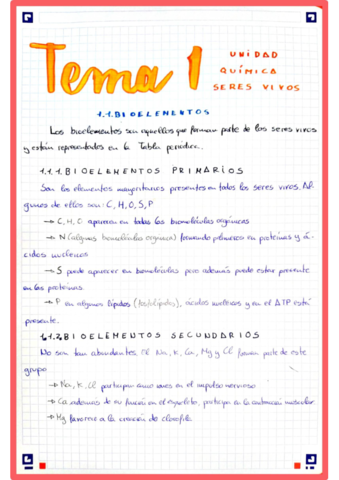 Tema 1
UNIDAD
QUÍMICA
SERES VIVOS
1.1. BIOELEMENTOS
Los bioelementos son aquellos que forman parte de los seres vivos
y están representados en la Tabla periódica.
1.1.1. BIOELEMENTOS PRIMARIOS
Son los elementos mayoritarios presentes en todos los seres vivos. Al
gunos de ellos son: C, H, O, S, P
→ C, H, O aparecen en todas las biomoléculas orgánicas
→ N (algunas biomoléculas orgánicas) formando polímeros en proteínas y á
cidos nucleicos
→ S puede aparecer en biomoléculas pero además puede estar presente
en las proteínas.
→ P en algunos lípidos (fosfolípidos), ácidos nucleicos y en el ATP está
presente.
1.1.2. BIOELEMENTOS SECUNDARIOS
No son tan abundantes. El Na, K, Ca, Mg y Cl forman parte de este
grupo
→ Na, K, Cl participan como iones en el impulso nervioso
→ Ca además de su función en el esqueleto, participa en la contracción muscular.
→ Mg favorece a la creación de clorofila